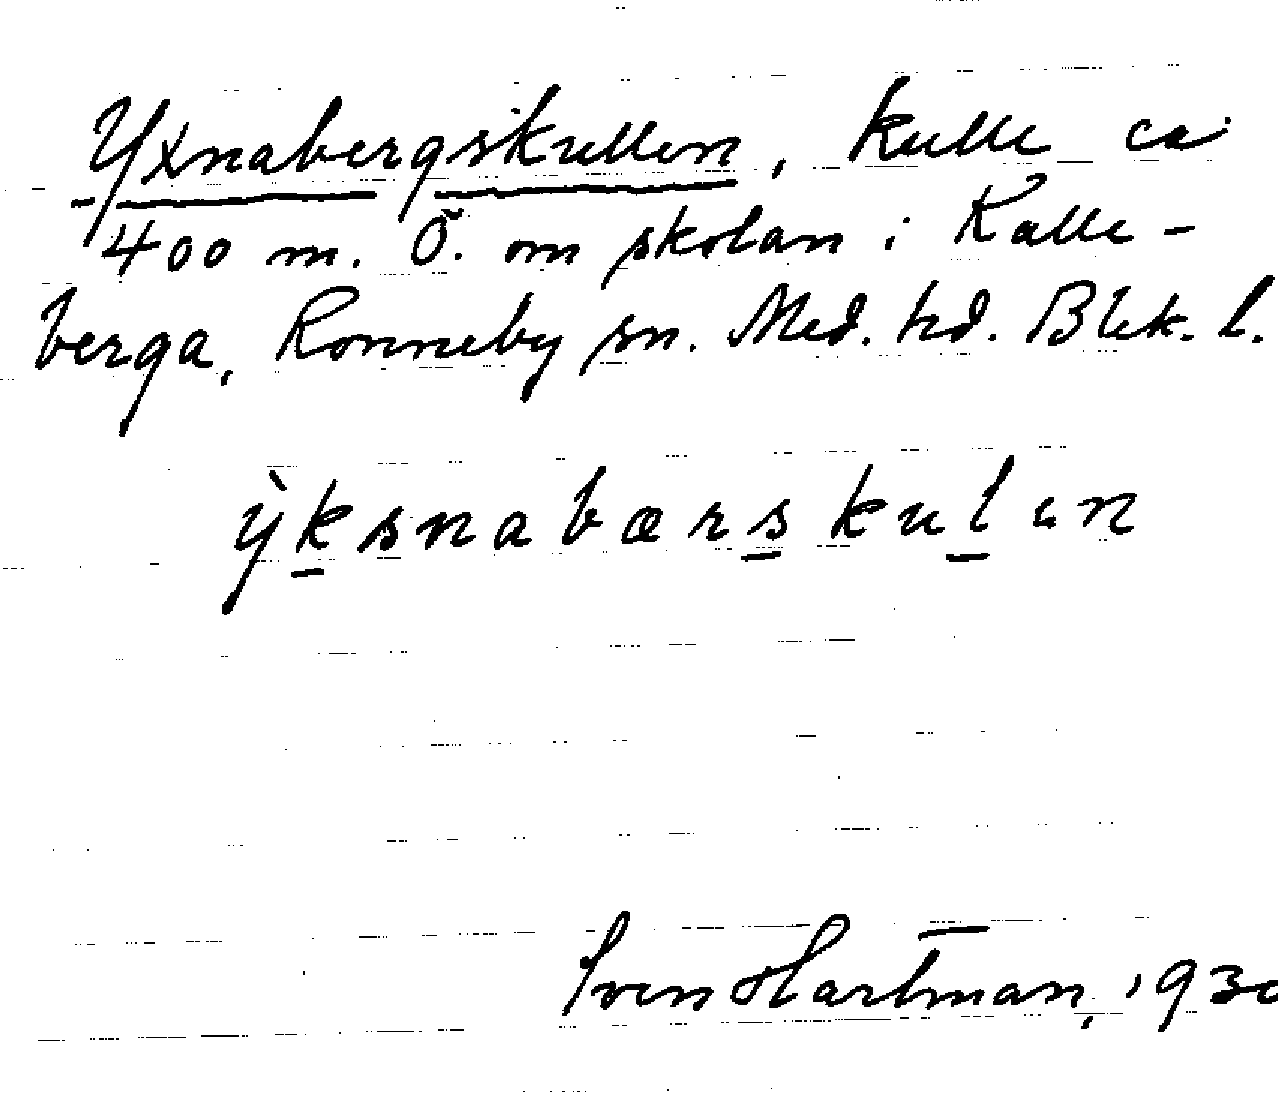 Yxnabergskullen, kulle ca
400 m. Ö. om skolan i Kalle-
berga, Ronneby sn. Med. hd. Blek. l.
ỳksnabærskulen
Sven Hartman, 1930